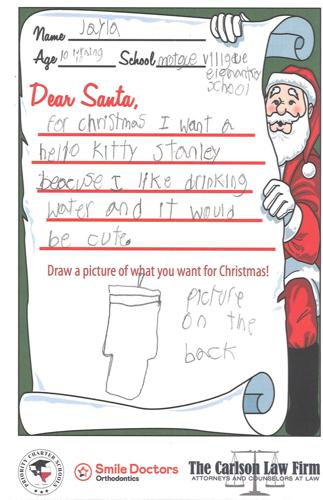 Name Jayla
Age 10 turning School morgae village
elemantry
school
Dear Santa,
for christmas I want a
hello Kitty Stanley
because I like drinking
water and it would
be cute.
Draw a picture of what you want for Christmas!
picture
on the
back
PRIORITY CHARTER SCHOOLS
Smile Doctors
Orthodontics
The Carlson Law Firm
ATTORNEYS AND COUNSELORS AT LAW